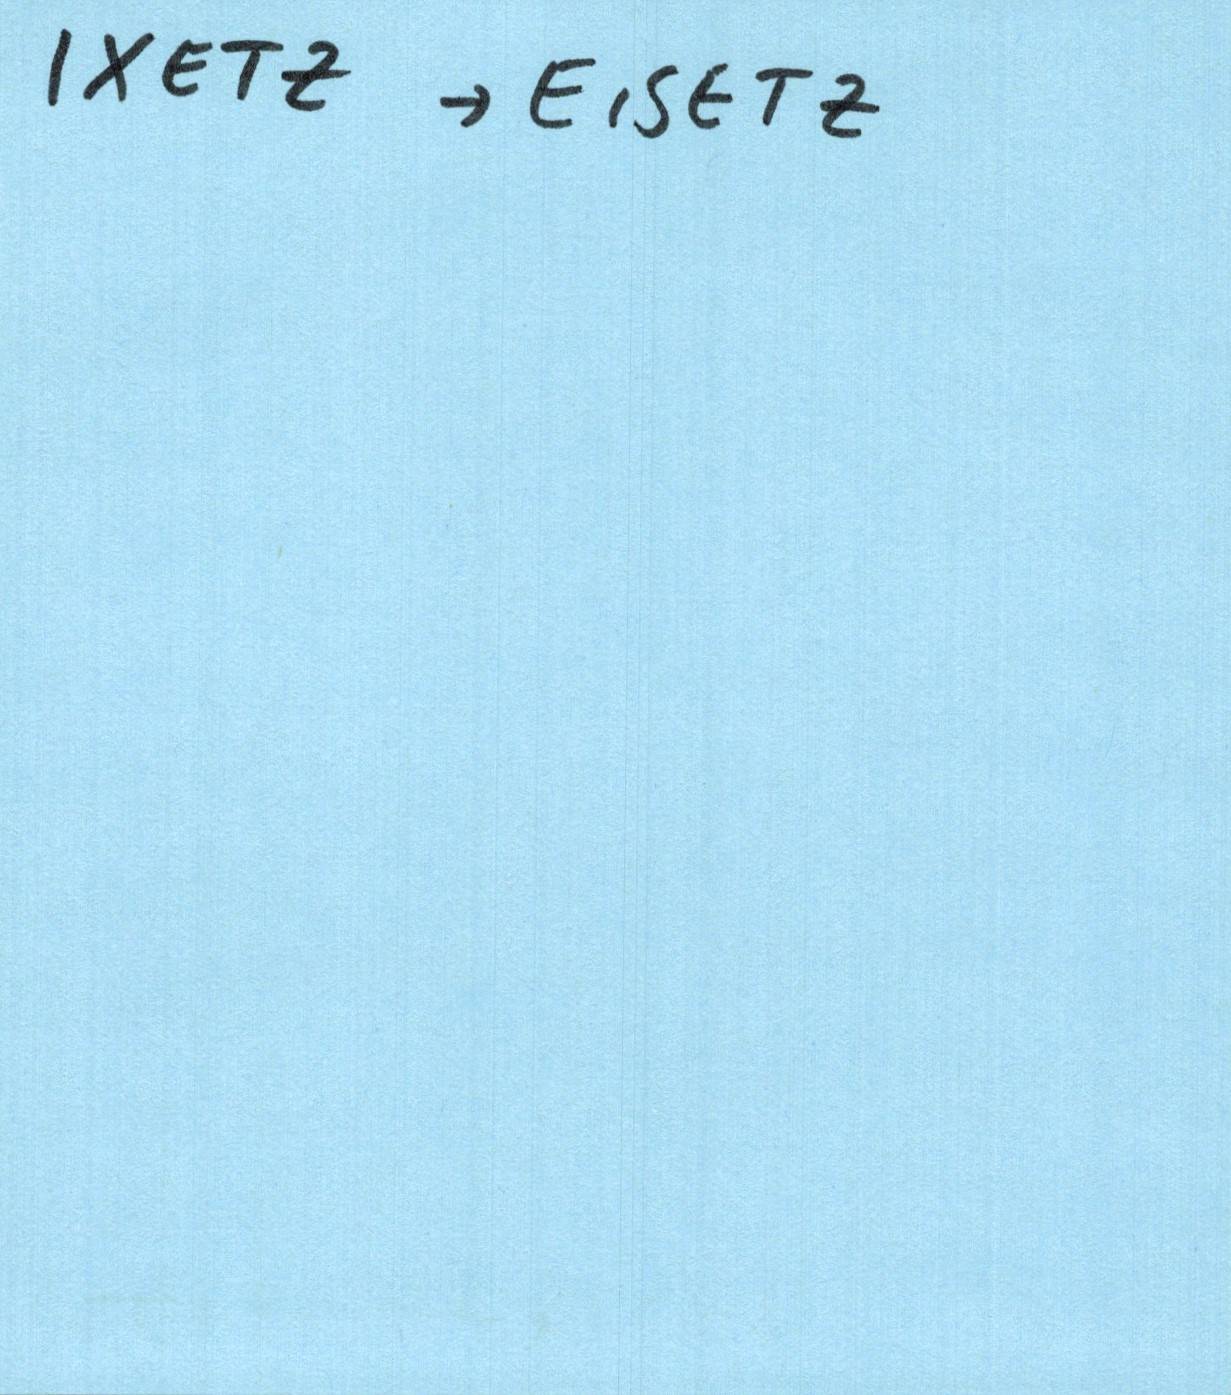 IXETZ → EISETZ